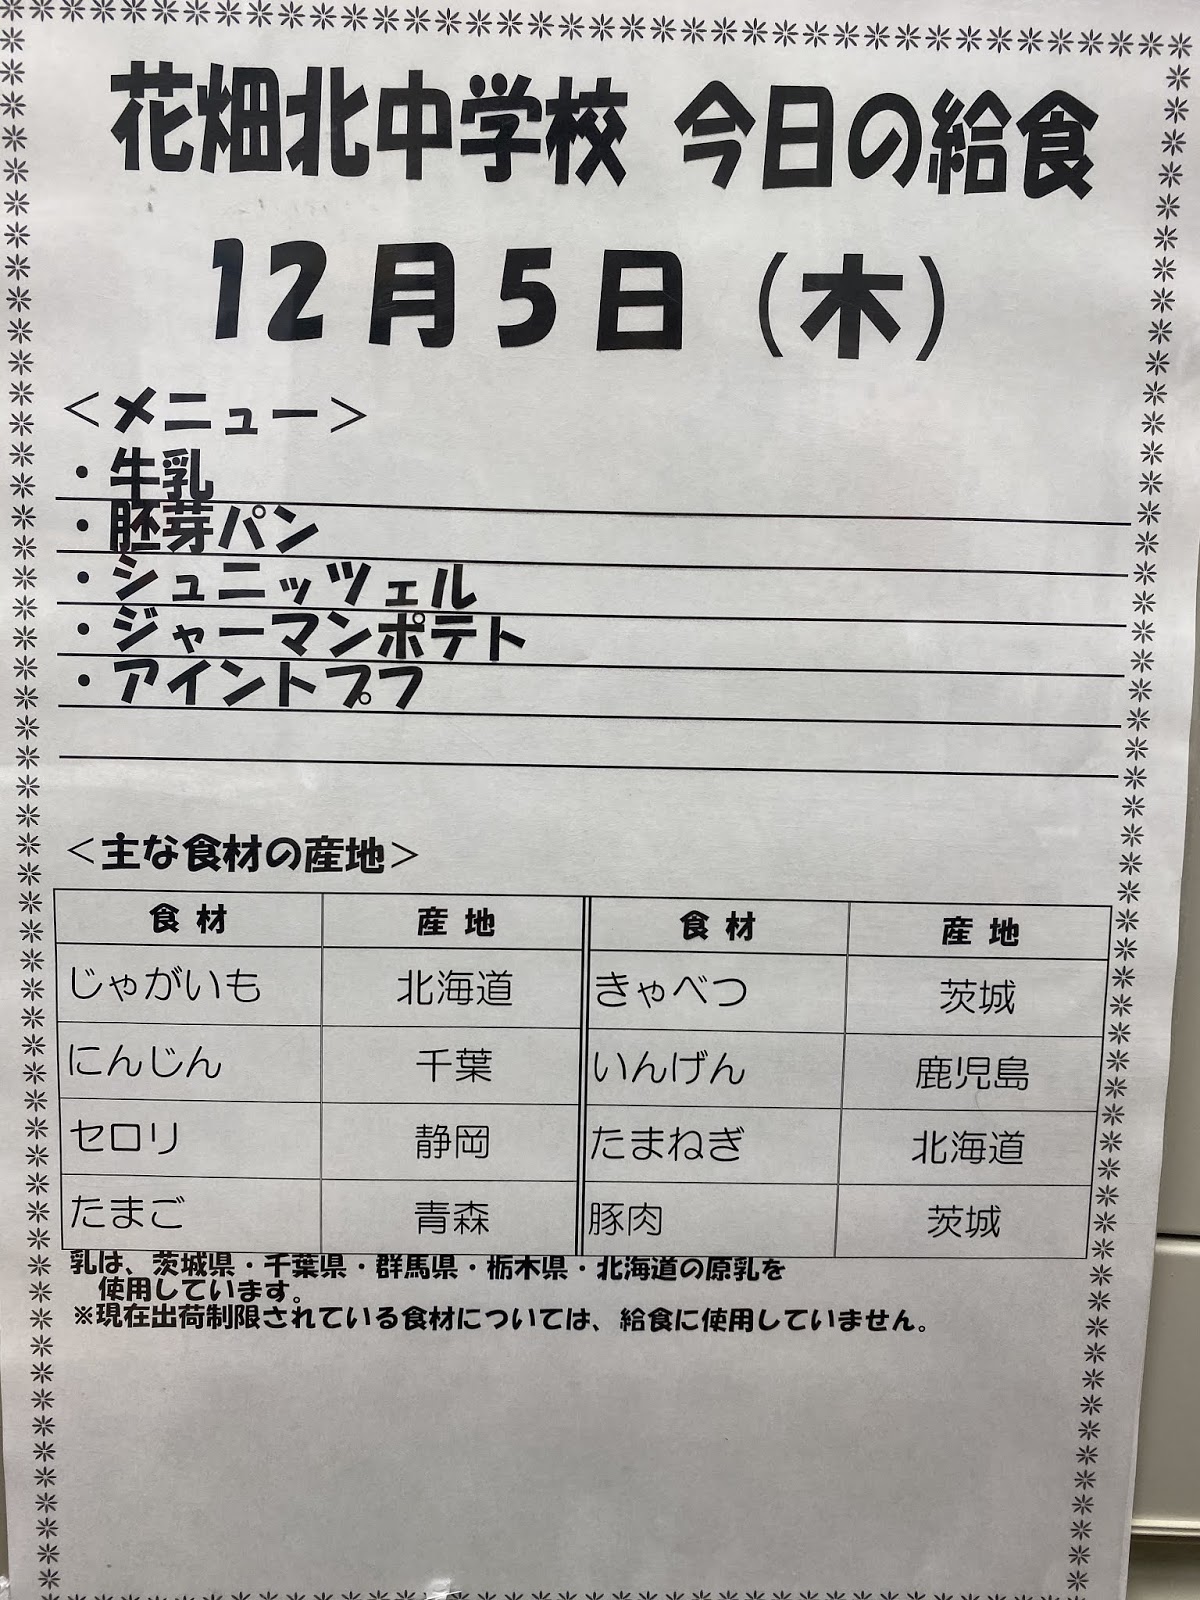 花畑北中学校 今日の給食
12月5日（木）
＜メニュー＞
・牛乳
・胚芽パン
・シュニッツェル
・ジャーマンポテト
・アイントプフ
＜主な食材の産地＞
食材 産地 食材 産地
じゃがいも 北海道 きゃべつ 茨城
にんじん 千葉 いんげん 鹿児島
セロリ 静岡 たまねぎ 北海道
たまご 青森 豚肉 茨城
乳は、茨城県・千葉県・群馬県・栃木県・北海道の原乳を
使用しています。
※現在出荷制限されている食材については、給食に使用していません。